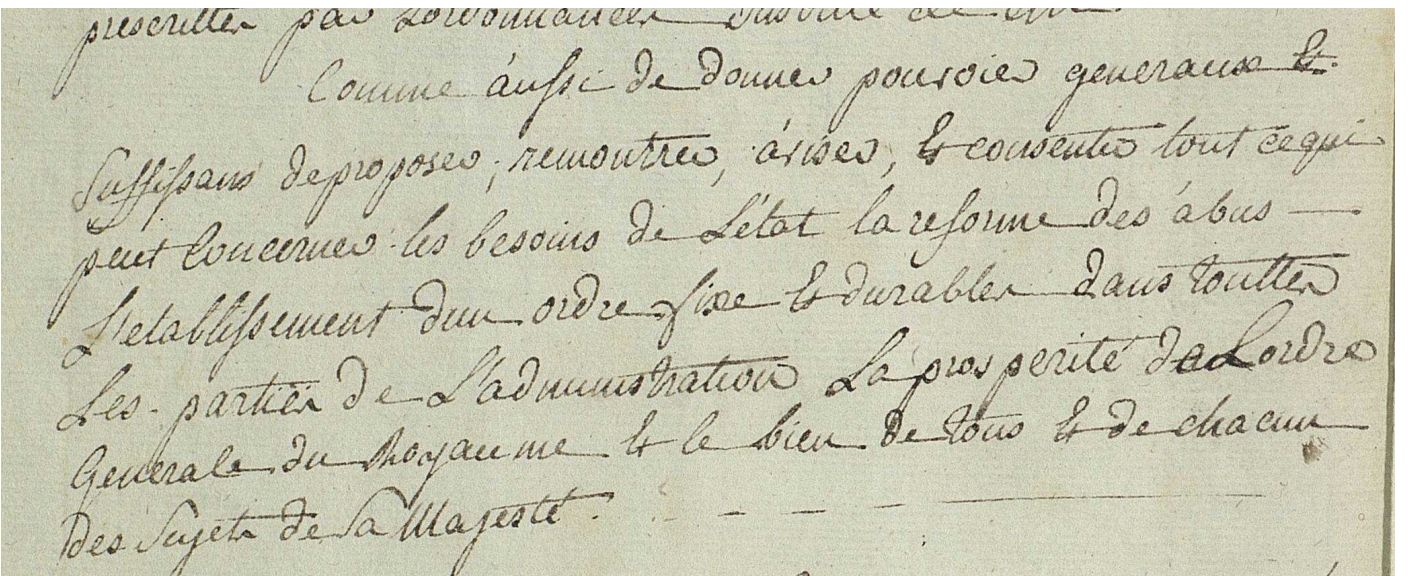 prescrittes par Lordonnances
Comme áussi de donner pouvoirs generaux &
Suffissans de proposer, remontrer, áviser, & consentir tout ce qui
peut Concerner les besoins de L'état la reforme des ábus —
L'etablissement d'un ordre fixe & durables dans touttes
Les parties de L'administration La prosperité de Lordre
Generale du Royaume & le bien de tous & de chacun
des Sujets de Sa Majesté.